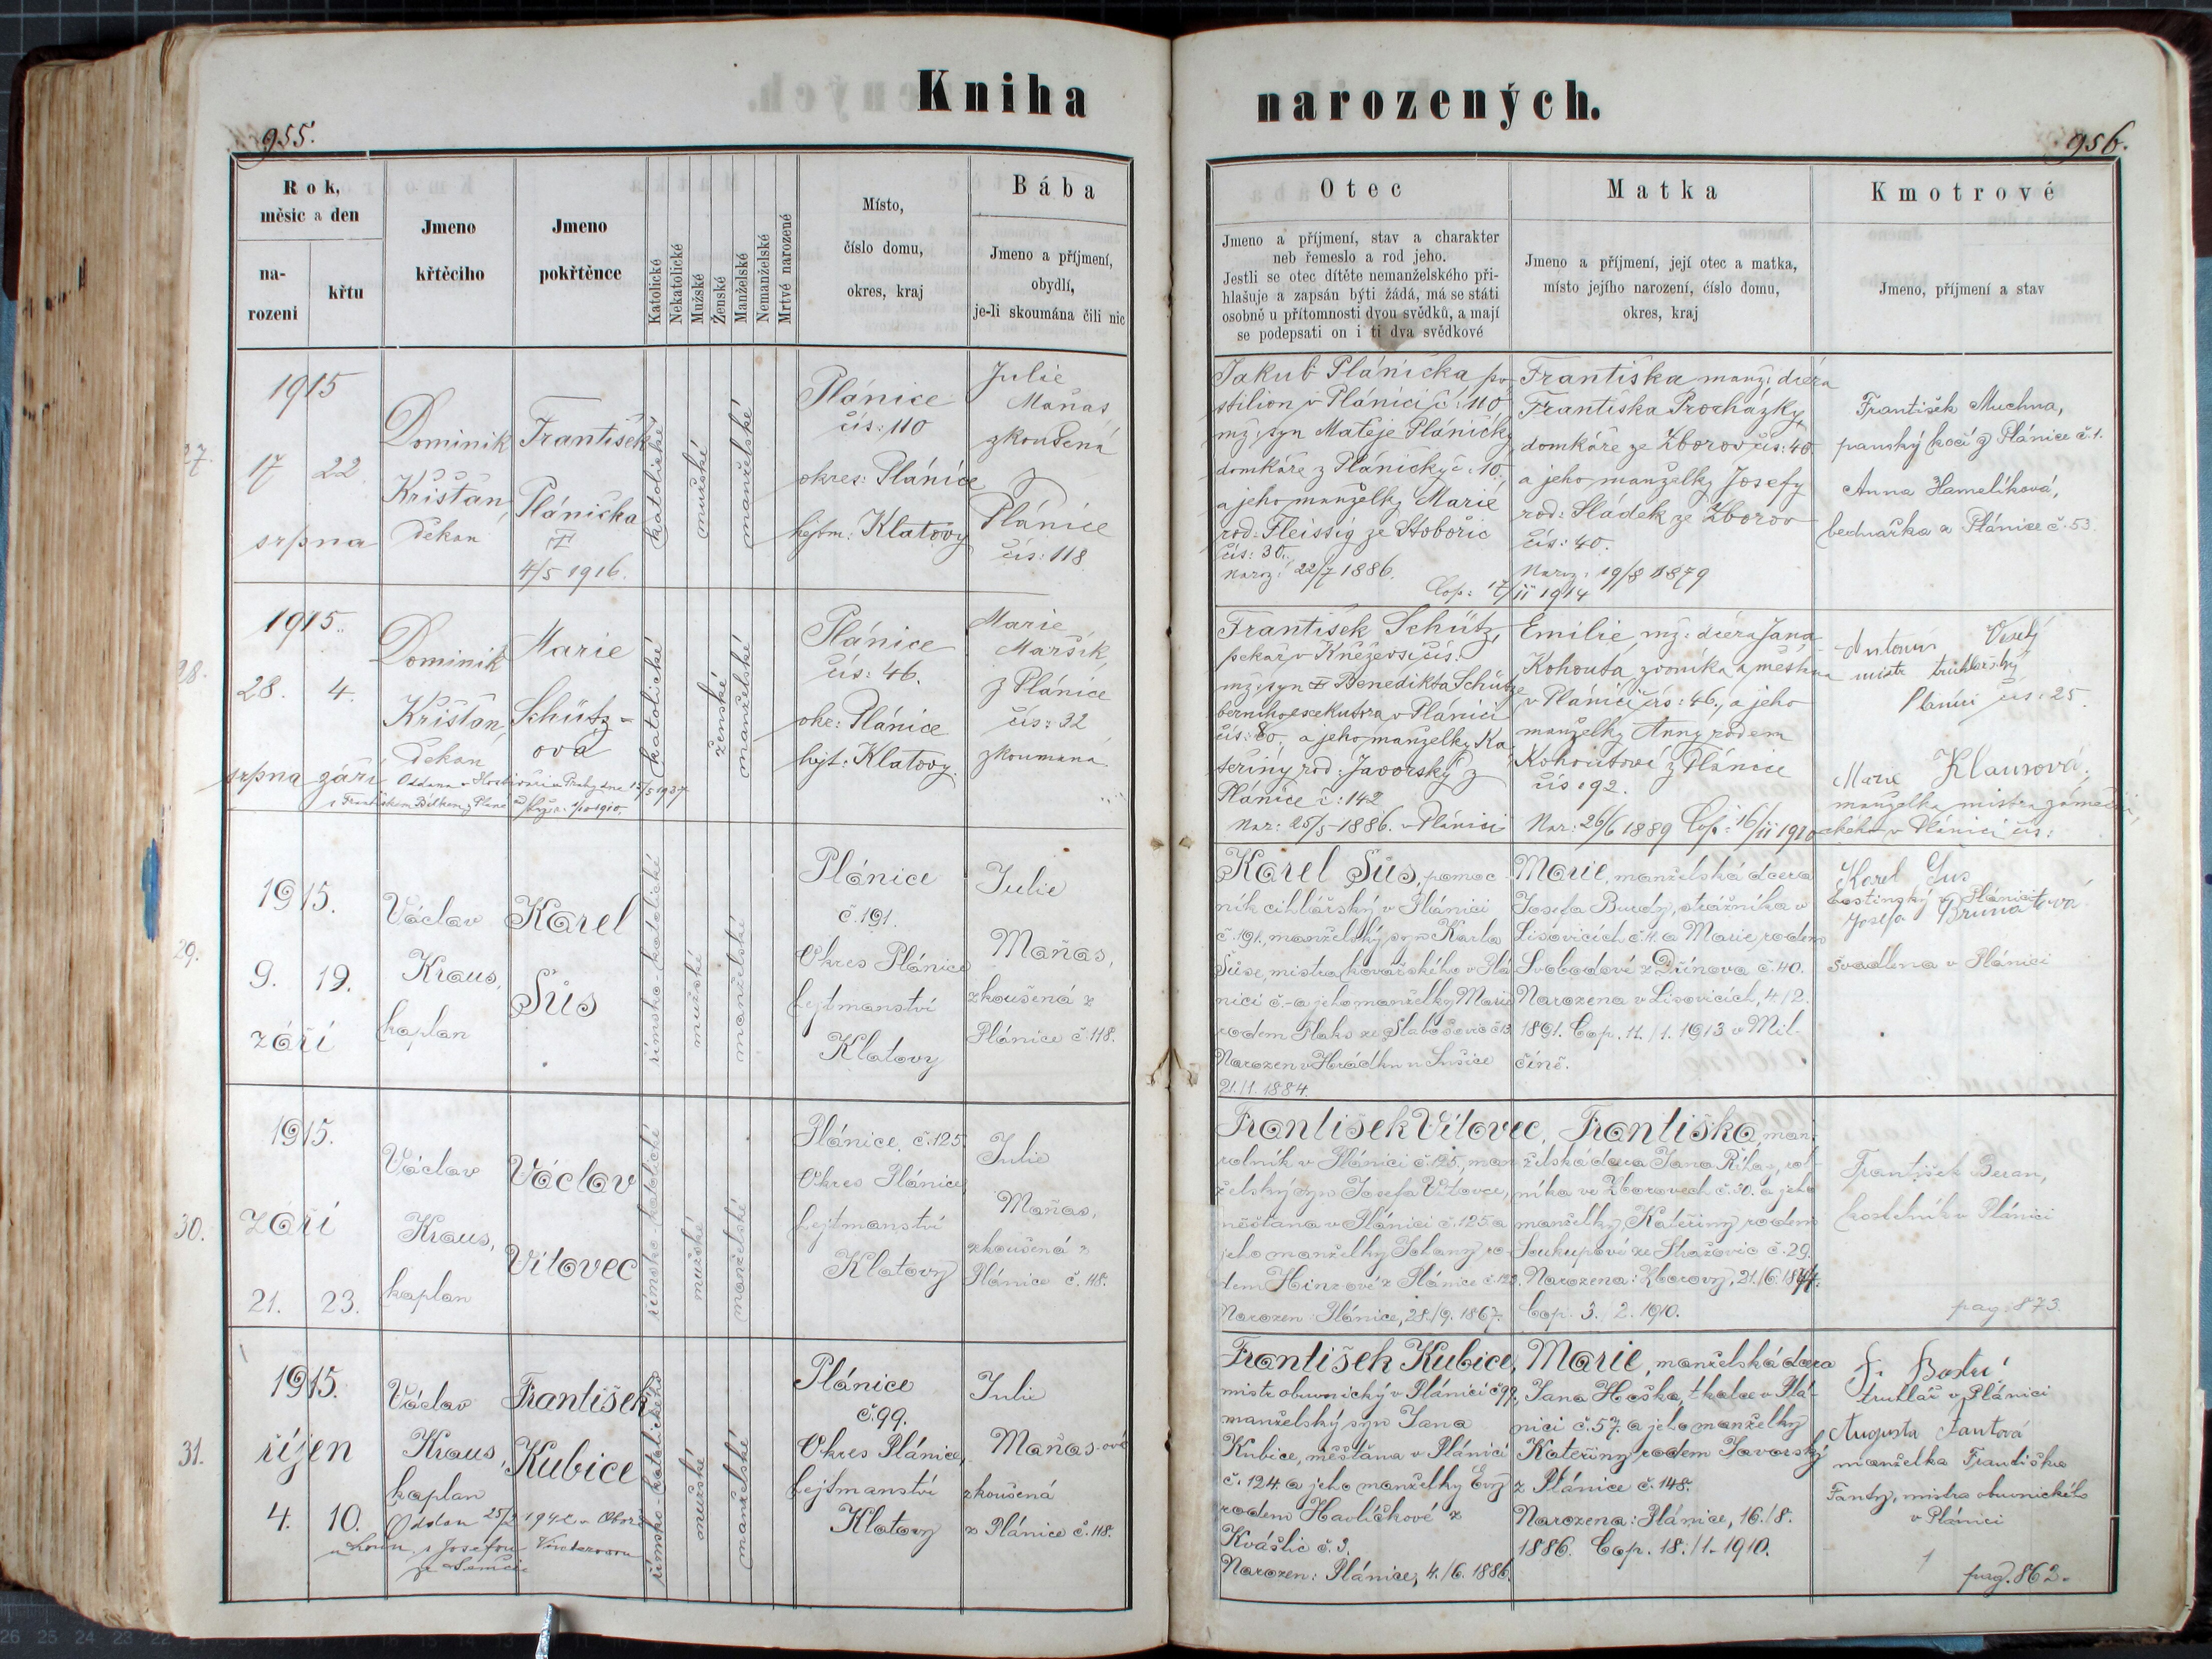 Kniha
narozených.
955.
956.
Rok,
měsíc a den
na-
rozeni
křtu
Jmeno
křtěcího
Jmeno
pokřtěnce
Katolické
Nekatolické
Mužské
Ženské
Manželské
Nemanželské
Mrtvé narozené
Místo,
číslo domu,
okres, kraj
Bába
Jmeno a příjmení,
obydlí,
je-li skoumána čili nic
Otec
Jmeno a příjmení, stav a charakter
neb řemeslo a rod jeho.
Jestli se otec dítěte nemanželského při-
hlašuje a zapsán býti žádá, má se státi
osobně u přítomnosti dvou svědků, a mají
se podepsati on i ti dva svědkové
Matka
Jmeno a příjmení, její otec a matka,
místo jejího narození, číslo domu,
okres, kraj
Kmotrové
Jmeno, příjmení a stav
27.
1915
17
22
srpna
Dominik
Krištan,
děkan
František
Plánička
4/5 1916.
katolické
mužské
manželské
Plánice
čís: 110
okres: Plánice
hejtm: Klatovy
Julie
Maňas
zkoušená
Plánice
čís: 118
Jakub Plánička po-
stilion v Plánici č: 110
mž: syn Matěje Pláničky
domkáře z Pláničky č: 10,
a jeho manželky Marie
rod: Fleissig ze Hobořic
čís: 30.
Naroz: 22/7 1886.
Cop: 17/II 1914
Františka, manž: dcéra
Františka Procházky,
domkáře ze Zborov čís: 40
a jeho manželky Josefy
rod: Sládek ze Zborov
čís: 40.
Naroz: 19/8 1879
František Muchna,
panský kočí z Plánice č.1.
Anna Hamelíková,
bednářka z Plánice č.53.
28.
1915.
28.
4.
srpna
září
Dominik
Krištan,
děkan
Marie
Schütz-
ová
katolické
ženské
manželské
Plánice
čís: 46.
okr: Plánice
hejt: Klatovy.
Marie
Maršík,
z Plánice
čís: 32
zkoumaná
František Schütz,
pekař v Kněževsi čís:
mž: syn Benedikta Schütze
berního exekutora v Plánici
čís: 80, a jeho manželky Ka-
teřiny rod: Javorský z
Plánice č: 142
Nar: 25/5 1886. v Plánici
Emilie, mž: dcéra Jana
Kohouta, zvoníka a měšťana
v Plánici čís: 46., a jeho
manželky Anny rodem
Kohoutové z Plánice
čís 92.
Nar: 26/6 1889 Cop: 16/II 1910
Antonín Veselý
mistr truhlářský
Plánici čís: 25.
Marie Klausová,
manželka mistra zámeč-
ckého v Plánici čís:
29.
1915.
9.
19.
září
Václav
Kraus,
kaplan
Karel
Süs
římsko-katolické
mužské
manželské
Plánice
č.191.
Okres Plánice
hejtmanství
Klatovy
Julie
Maňas,
zkoušená z
Plánice č.118.
Karel Süs, pomoc-
ník cihlářský v Plánici
č.191., manželský syn Karla
Süse, mistra kovářského v Plá-
nici č.- a jeho manželky Marie
Narozen v Hrádku u Sušice
21./1. 1884.
Marie, manželská dcera
Josefa Burdy, strážníka v
Lisovicích č.11. a Marie rodem
Svobodové z Dřínova č.40.
Narozena v Lisovicích, 4./2.
1891. Cop. 11./1. 1913 v Mil-
číně.
Karel Süs
Josefa Brunátová
švadlena v Plánici
30.
1915.
září
21.
23.
Václav
Kraus,
kaplan
Václav
Vítovec
římsko-katolické
mužské
manželské
Plánice, č.125
Okres Plánice,
hejtmanství
Klatovy
Julie
Maňas,
zkoušená z
Plánice č.118.
František Vítovec,
rolník v Plánici č.125., man-
želský syn Josefa Vítovce,
měšťana v Plánici č.125. a
jeho manželky Johany ro-
dem Hinzové z Plánice č.122.
Narozen: Plánice, 28./9. 1867.
Františka, man-
želská dcera Jana Říhy, rol-
níka ve Zborovech č.30. a jeho
manželky Kateřiny rodem
Soukupové ze Stražovic č.29.
Narozena: Zborovy, 21./6. 1874.
Cop. 3. 2. 1910.
František Beran,
kostelník v Plánici
pag: 873.
31.
1915.
říjen
4.
10.
Václav
Kraus,
kaplan
František
Kubice
římsko-katolické
mužské
manželské
Plánice
č.99.
Okres Plánice,
hejtmanství
Klatovy
Julie
Maňas-ové
zkoušená
z Plánice č.118.
František Kubice,
mistr obuvnický v Plánici č.99.,
manželský syn Jana
Kubice, měšťana v Plánici
č.124. a jeho manželky Evy
rodem Havlíčkové z
Kvášlic č.3.
Narozen: Plánice, 4./6. 1886.
Marie, manželská dcera
Jana Haška, tkalce v Plá-
nici č.57. a jeho manželky
Kateřiny rodem Javorský
z Plánice č.148.
Narozena: Plánice, 16./8.
1886. Cop. 18./1. 1910.
truhlář v Plánici
Augusta Fantová
manželka Františka
Fanty, mistra obuvnického
v Plánici
pag. 862.